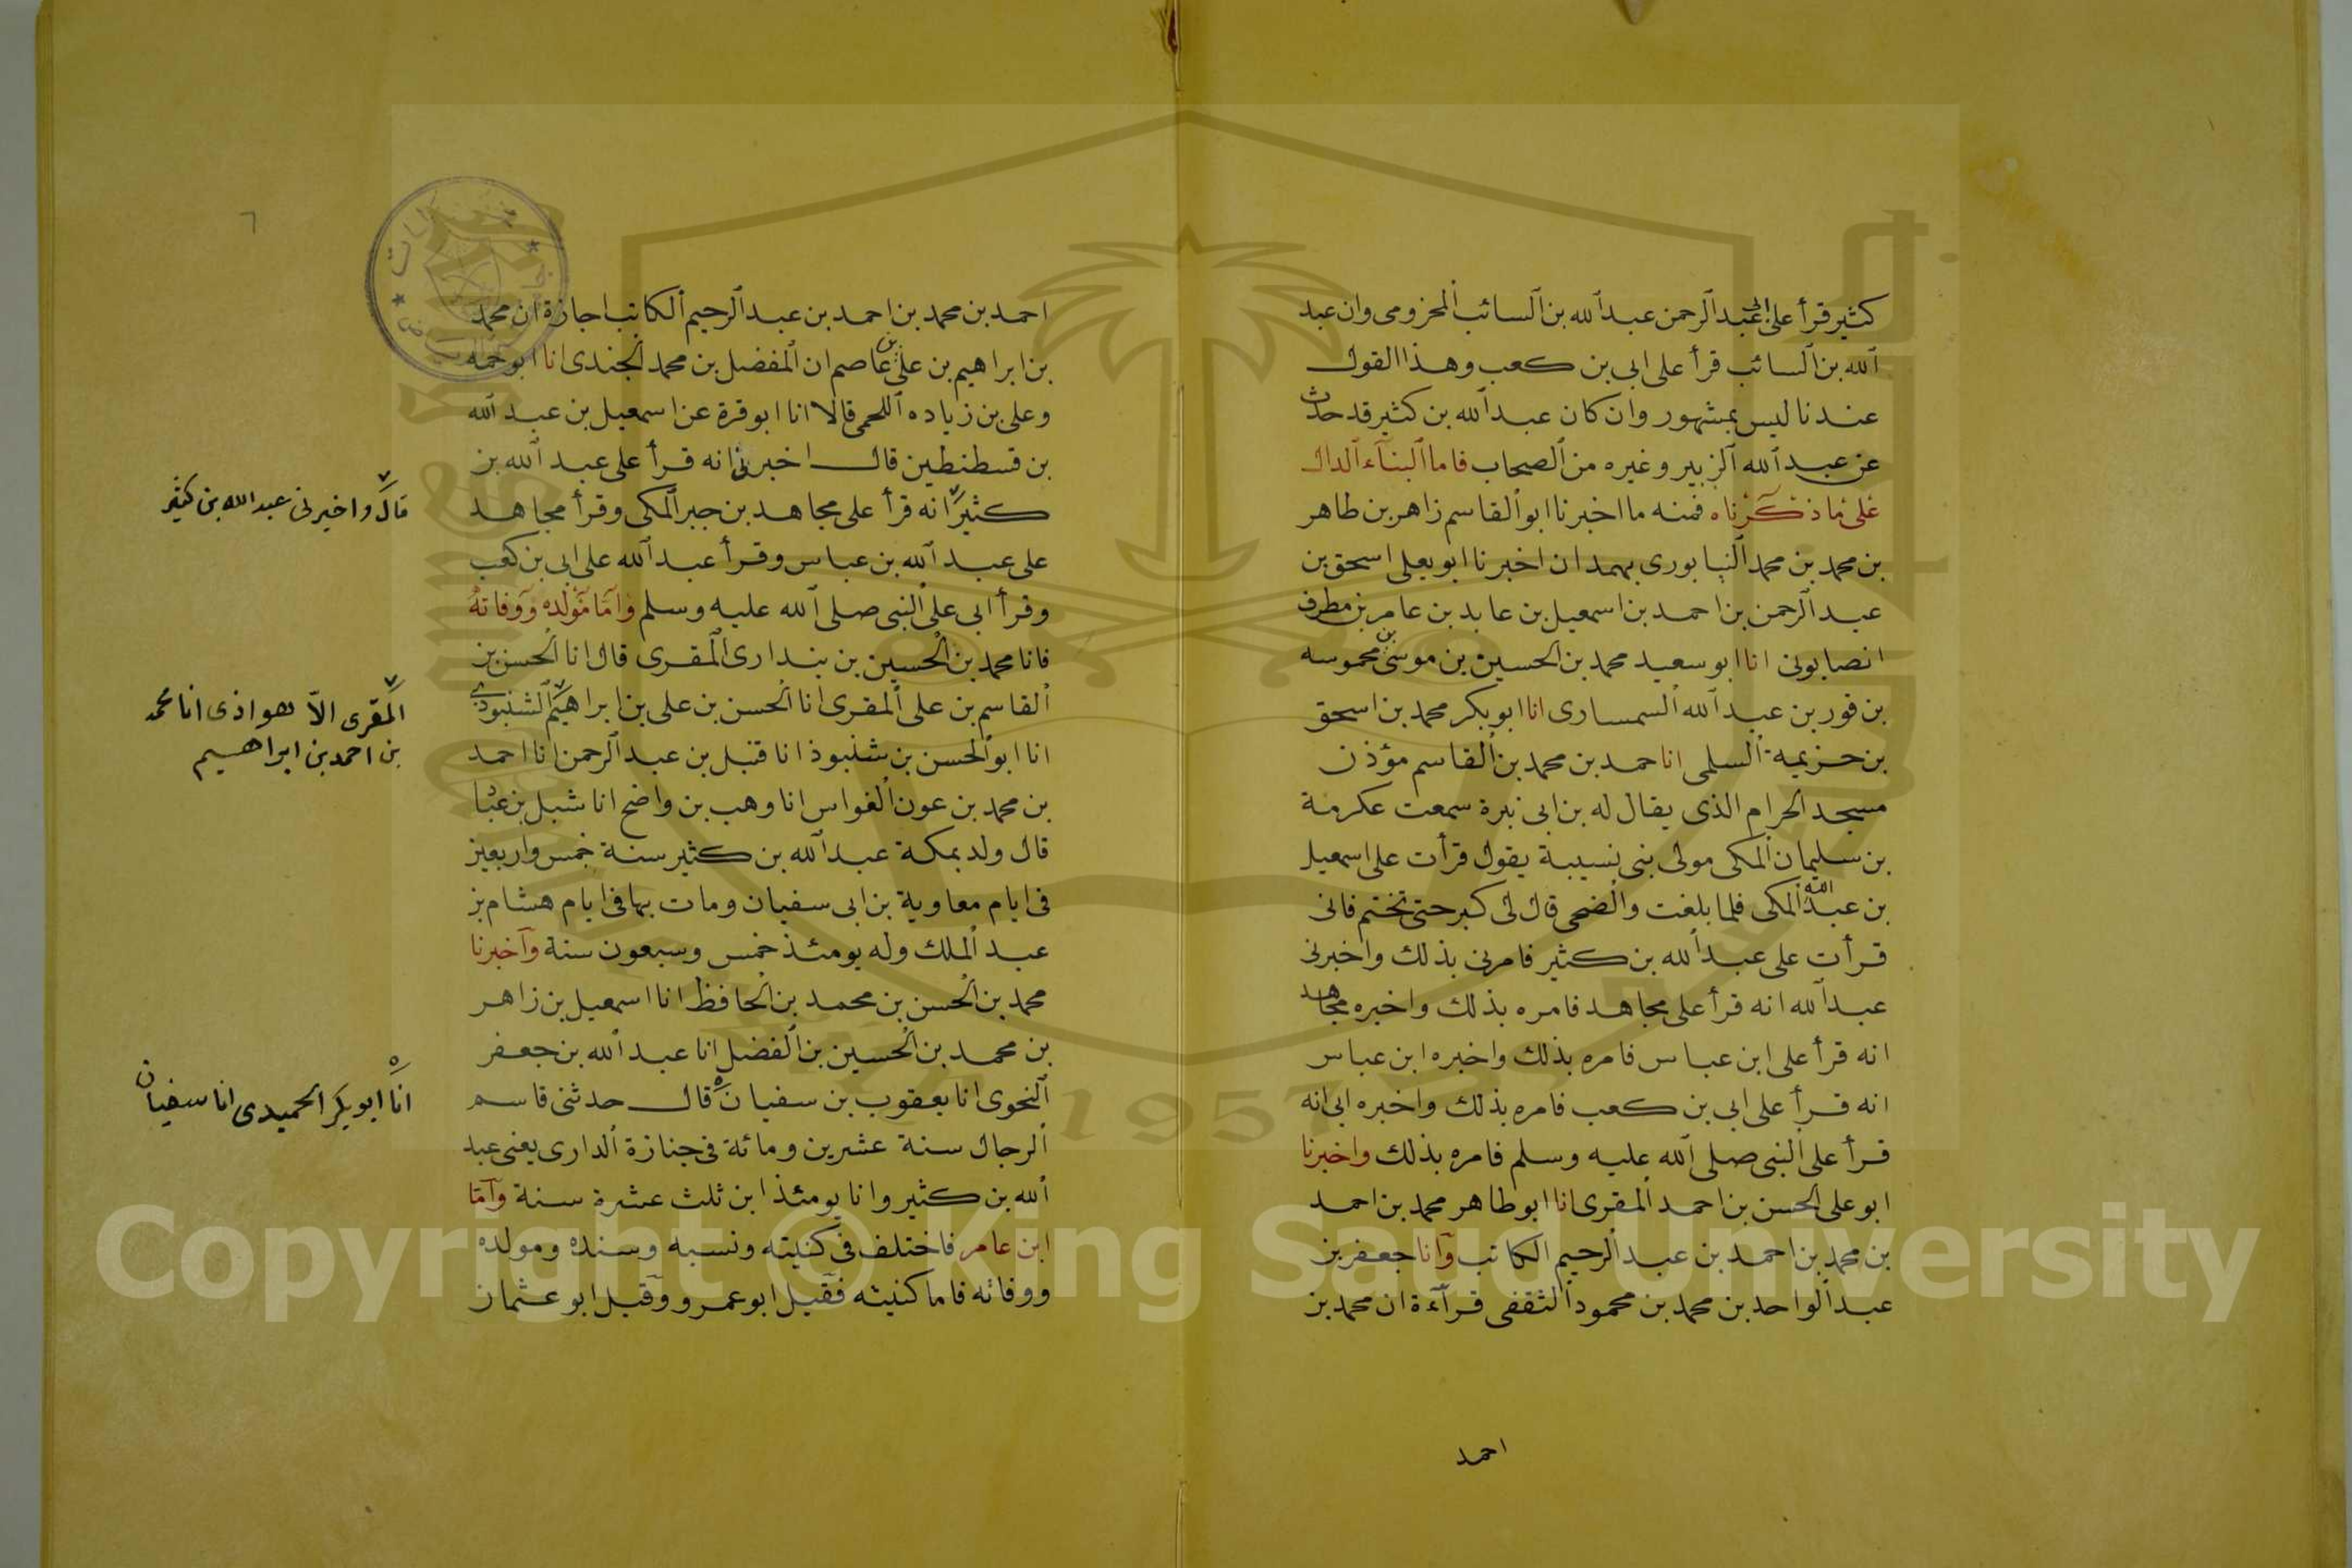 كثير قرأ على ابى عبد الرحمن عبد الله بن السائب المخزومى وان عبد
الله بن السائب قرأ على ابى بن كعب وهذا القول
عندنا ليس بمشهور وان كان عبد الله بن كثير قد حدث
عن عبد الله الزبير وغيره من الصحاب فاما البناء الدال
على ما ذكرناه فمنه ما اخبرنا ابو القاسم زاهر بن طاهر
بن محمد بن محمد النيابورى بهمدان اخبرنا ابو يعلى اسحق بن
عبد الرحمن بن احمد بن اسمعيل بن عابد بن عامر بن مطرف
انصابونى انا ابو سعيد محمد بن الحسين بن موسى بن محموسه
بن فور بن عبد الله السمسارى انا ابو بكر محمد بن اسحق
بن حزيمة السلمى انا حمد بن محمد بن القاسم مؤذن
مسجد الحرام الذى يقال له بن ابى نبرة سمعت عكرمة
بن سليمان المكى مولى بنى نسيبة يقول قرأت على اسمعيل
بن عبد الله المكى فلما بلغت والضحى قال لى كبر حتى تختم فانى
قرأت على عبد الله بن كثير فامرنى بذلك واخبرنى
عبد الله انه قرأ على مجاهد فامره بذلك واخبره مجاهد
انه قرأ على ابن عباس فامره بذلك واخبره ابن عباس
انه قرأ على ابى بن كعب فامره بذلك واخبره ابى انه
قرأ على النبى صلى الله عليه وسلم فامره بذلك واخبرنا
ابو على الحسن بن احمد المقرى انا ابو طاهر محمد بن احمد
بن محمد بن احمد بن عبد الرحيم الكاتب وانا جعفر بن
عبد الواحد بن محمد بن محمود الثقفى قرآءة ان محمد بن
احمد
٦
احمد بن محمد بن احمد بن عبد الرحيم الكاتب اجازة ان محمد
بن ابراهيم بن على بن عاصم ان المفضل بن محمد الجندى انا ابو حمه
وعلى بن زياده اللحمى قالا انا ابو قرة عن اسمعيل بن عبد الله
بن قسطنطين قال اخبرنى انه قرأ على عبد الله بن
كثير انه قرأ على مجاهد بن جبر المكى وقرأ مجاهد
على عبد الله بن عباس وقرأ عبد الله على ابى بن كعب
وقرأ ابى على النبى صلى الله عليه وسلم واما مولده ووفاته
فانا محمد بن الحسين بن بندارى المقرى قال انا الحسن بن
القاسم بن على المقرى انا الحسن بن على بن ابراهيم الشنبوذى
انا ابو الحسن بن شنبوذ انا قنبل بن عبد الرحمن انا احمد
بن محمد بن عون الغواس انا وهب بن واضح انا شبل بن عباد
قال ولد بمكة عبد الله بن كثير سنة خمس واربعين
فى ايام معاوية بن ابى سفيان ومات بها فى ايام هشام بن
عبد الملك وله يومئذ خمس وسبعون سنة وآخبرنا
محمد بن الحسن بن محمد بن الحافظ انا اسمعيل بن زاهر
بن محمد بن الحسين بن الفضل انا عبد الله بن جعفر
النحوى انا يعقوب بن سفيان قال حدثنى قاسم
الرجال سنة عشرين ومائة فى جنازة الدارى يعنى عبد
الله بن كثير وانا يومئذ ابن ثلث عشرة سنة وآما
ابن عامر فاختلف فى كنيته ونسبه وسنده ومولده
ووفاته فاما كنيته فقيل ابو عمرو وقيل ابو عثمان
قال واخبرنى عبد الله بن كثير
المقرى الاهواذى انا محمد
بن احمد بن ابراهيم
انا ابو بكر الحميدى انا سفيان
1957
Copyright © King Saud University